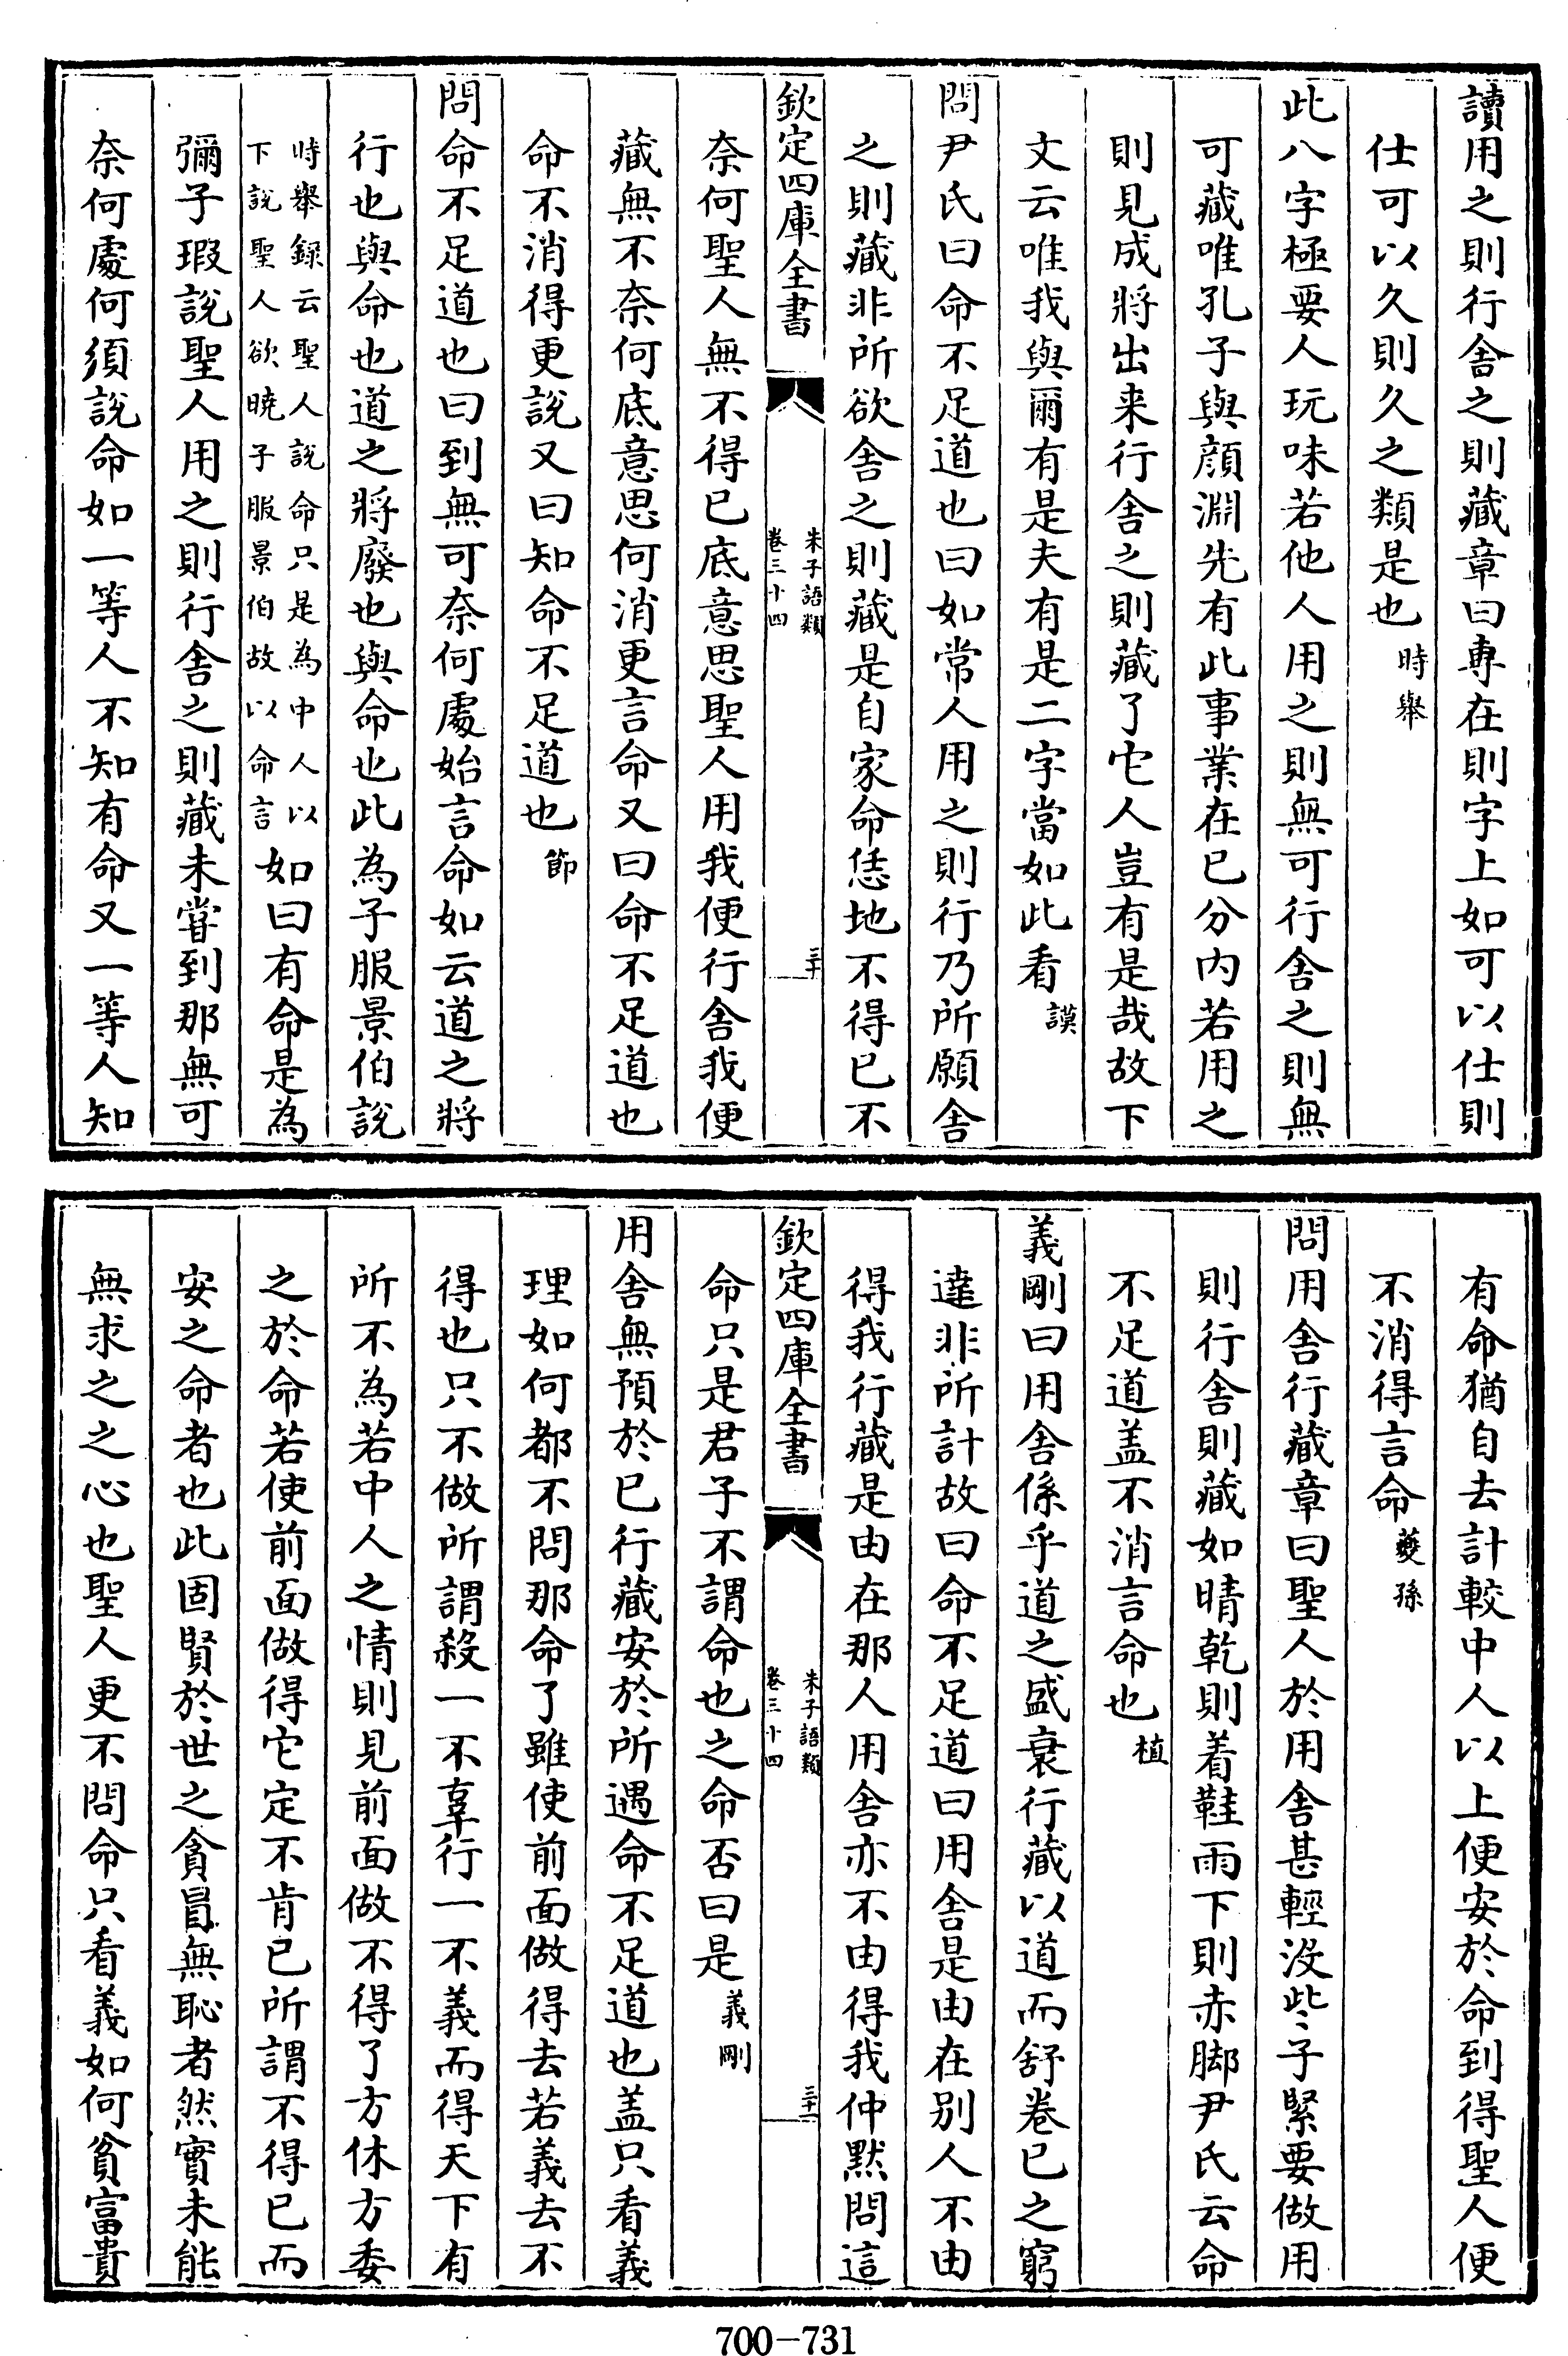 讀用之則行舍之則藏章曰専在則字上如可以仕則
仕可以久則久之類是也時舉
此八字極要人玩味若他人用之則無可行舍之則無
可藏唯孔子與顔淵先有此事業在已分内若用之
則見成將出来行舍之則藏了它人豈有是哉故下
文云唯我與爾有是夫有是二字當如此看謨
問尹氏曰命不足道也曰如常人用之則行乃所願舍
之則藏非所欲舍之則藏是自家命恁地不得已不
欽定四庫全書
朱子語類
卷三十四
三十
奈何聖人無不得已底意思聖人用我便行舍我便
藏無不奈何底意思何消更言命又曰命不足道也
命不消得更說又曰知命不足道也節
問命不足道也曰到無可奈何處始言命如云道之將
行也與命也道之將廢也與命也此為子服景伯說
時舉録云聖人說命只是為中人以
下說聖人欲曉子服景伯故以命言
如曰有命是為
彌子瑕說聖人用之則行舍之則藏未甞到那無可
奈何處何須說命如一等人不知有命又一等人知
有命猶自去計較中人以上便安於命到得聖人便
不消得言命䕫孫
問用舍行藏章曰聖人於用舍甚輕没些子緊要做用
則行舍則藏如晴乾則着鞋雨下則赤脚尹氏云命
不足道盖不消言命也植
義剛曰用舍係乎道之盛衰行藏以道而舒卷已之窮
達非所計故曰命不足道曰用舍是由在别人不由
得我行藏是由在那人用舍亦不由得我仲黙問這
欽定四庫全書
朱子語類
卷三十四
三十一
命只是君子不謂命也之命否曰是義剛
用舍無預於已行藏安於所遇命不足道也盖只看義
理如何都不問那命了雖使前面做得去若義去不
得也只不做所謂殺一不辜行一不義而得天下有
所不為若中人之情則見前面做不得了方休方委
之於命若使前面做得它定不肯已所謂不得已而
安之命者也此固賢於世之貪冒無恥者然實未能
無求之之心也聖人更不問命只看義如何貧富貴
700-731